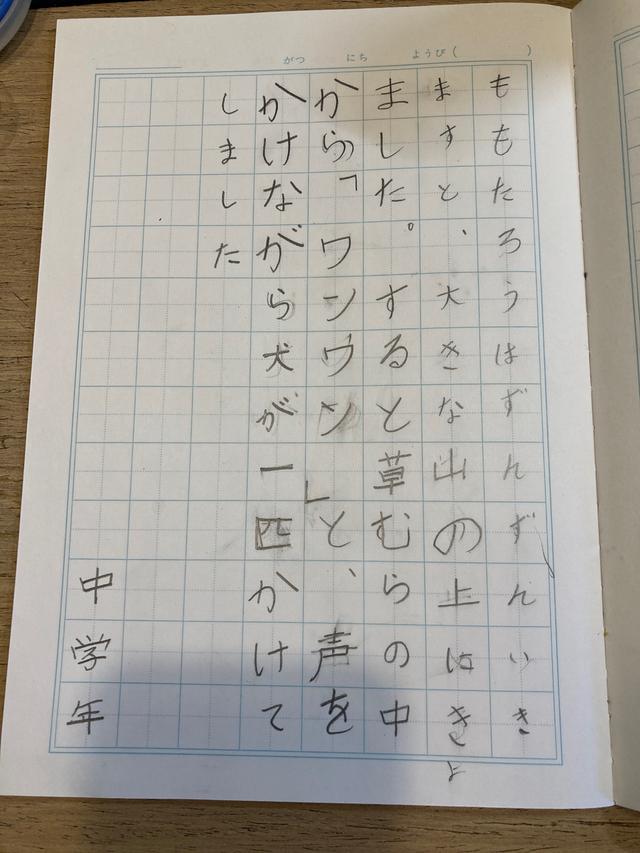 がつ にち ようび( )
ももたろうはずんずんいき
ますと、大きな山の上にきよ
ました。すると草むらの中
から「ワンワン」と、声を
かけながら犬が一匹かけて
しました
中学年